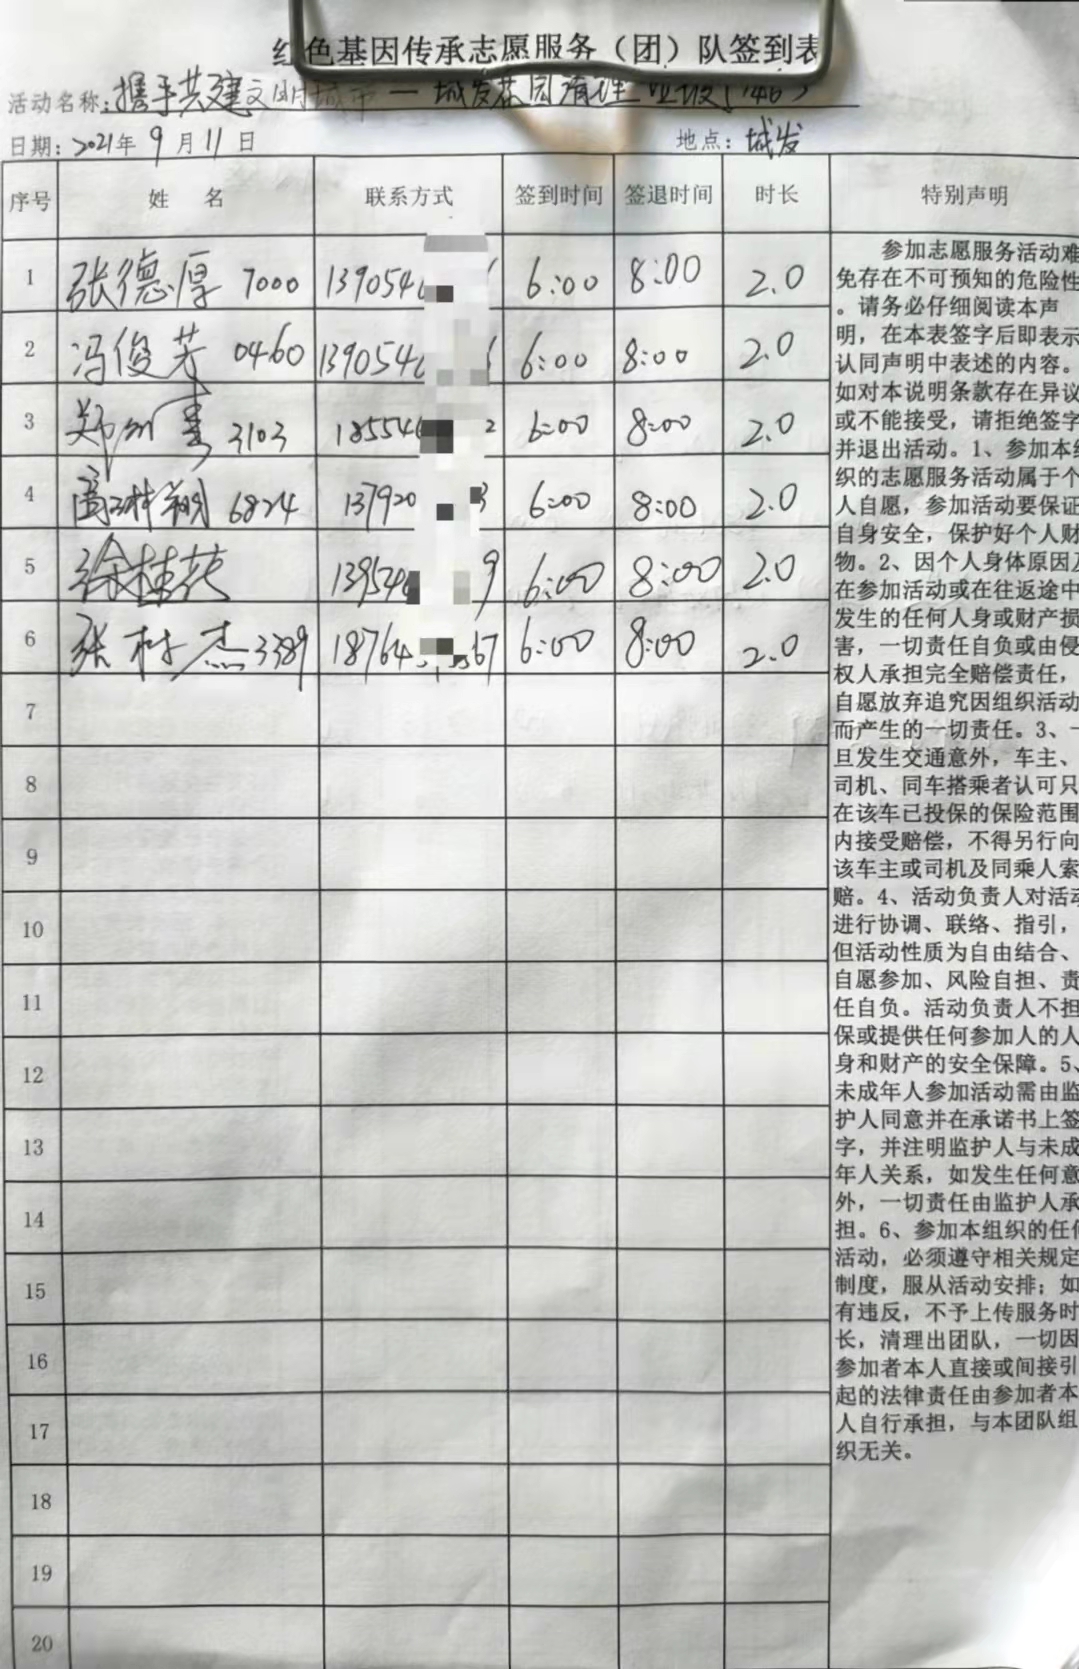 红色基因传承志愿服务（团）队签到表
活动名称：携手共建文明城市—城发花园清理
日期：2021年9月11日 地点：城发
序号 姓名 联系方式 签到时间 签退时间 时长 特别声明
1 张德厚 7000 139054 6:00 8:00 2.0
2 冯俊芳 0460 139054 6:00 8:00 2.0
3 郑 3103 18554 2 6:00 8:00 2.0
4 6824 137920 3 6:00 8:00 2.0
5 徐桂花 139544 9 6:00 8:00 2.0
6 张树杰 3389 18764 67 6:00 8:00 2.0
7
8
9
10
11
12
13
14
15
16
17
18
19
20
参加志愿服务活动难
免存在不可预知的危险性
。请务必仔细阅读本声
明，在本表签字后即表示
认同声明中表述的内容。
如对本说明条款存在异议
或不能接受，请拒绝签字
并退出活动。1、参加本组
织的志愿服务活动属于个
人自愿，参加活动要保证
自身安全，保护好个人财
物。2、因个人身体原因及
在参加活动或在往返途中
发生的任何人身或财产损
害，一切责任自负或由侵
权人承担完全赔偿责任，
自愿放弃追究因组织活动
而产生的一切责任。3、一
旦发生交通意外，车主、
司机、同车搭乘者认可只
在该车已投保的保险范围
内接受赔偿，不得另行向
该车主或司机及同乘人索
赔。4、活动负责人对活动
进行协调、联络、指引，
但活动性质为自由结合、
自愿参加、风险自担、责
任自负。活动负责人不担
保或提供任何参加人的人
身和财产的安全保障。5、
未成年人参加活动需由监
护人同意并在承诺书上签
字，并注明监护人与未成
年人关系，如发生任何意
外，一切责任由监护人承
担。6、参加本组织的任何
活动，必须遵守相关规定
制度，服从活动安排；如
有违反，不予上传服务时
长，清理出团队，一切因
参加者本人直接或间接引
起的法律责任由参加者本
人自行承担，与本团队组
织无关。